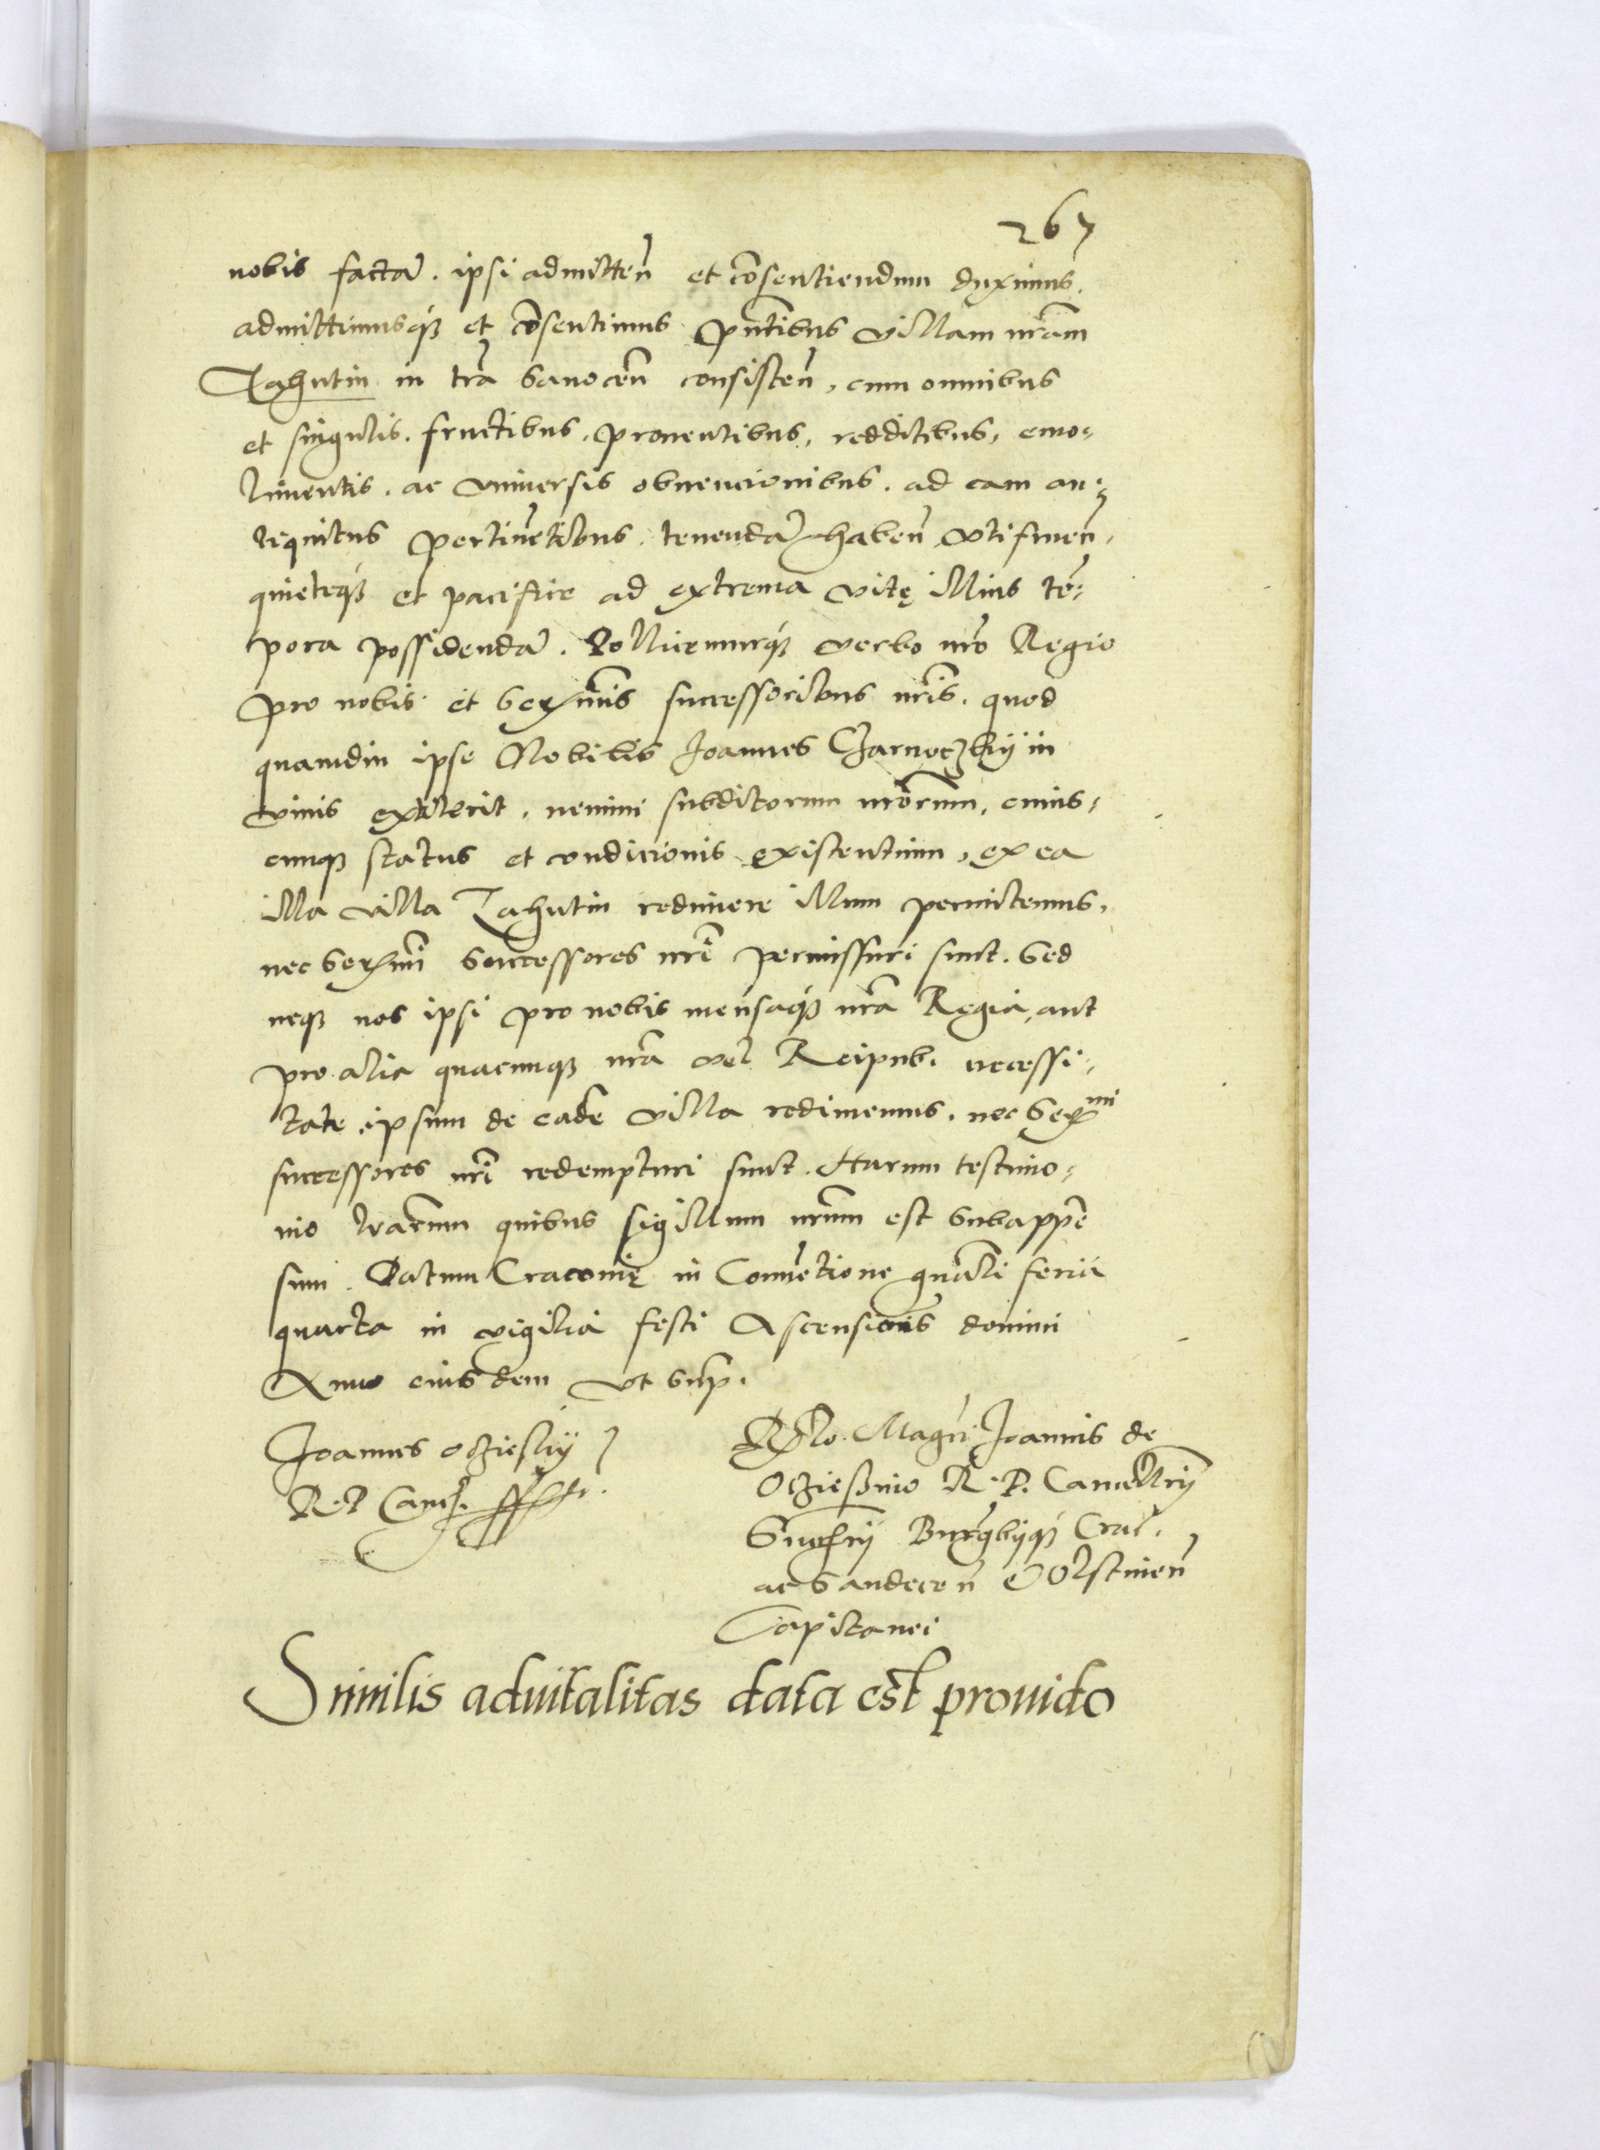 267
nobis factã. ipsi admitteñ et cõsentiendum duximus.
admittimusq́ꝫ et cõsentimus pñtibus villam nrãm
Zahutin in trã Sanoceñ consisteñ, cum omnibus
et singulis. fructibus, prouentibus, redditibus, emo-
limentis. ac vniuersis obuencionibus. ad eam an-
tiquitus pertinẽtibus. tenendã habeñ vtifrueñ.
quieteq́ꝫ et pacifice ad extrema vitę illius tẽ-
pora possidendã. Pollicemurq́ꝫ verbo nrõ Regio
pro nobis et Serm̃is successoribus nrĩs. quod
quamdiu ipse Nobilis Joannes Czarnoczkij in
viuis extiterit, nemini subditorum nrõrum, cuius-
cunqꝫ status et condicionis existentium, ex ea
illa villa Zahutin redimere illum permittemus,
nec Serm̃i Successores nrĩ permissuri sunt. Sed
neqꝫ nos ipsi pro nobis mensaq́ꝫ nrã Regia, aut
pro alia quacunqꝫ nrã vel Reipub. necessi-
tate ipsum de eadẽ villa redimemus. nec Ser mi
successores nrĩ redempturi sunt. Harum testimo-
nio lrãrum quibus sigillum nrũm est Subappẽ
sum. Datum Cracouię in Conuẽtione gnãli feria
quarta in vigilia festi Ascensionis domini
Anno eiusdem vt Sup̃.
Joannes oczieskij
R. P. Canc.
Rlo. Magci Joannis de
Oczieschino R. P. Cancellrij
Gnalis Burgbijq́ꝫ Crac.
ac Sandeceñ Olstineñ
Capitanei
Similis aduitalitas data est prouido